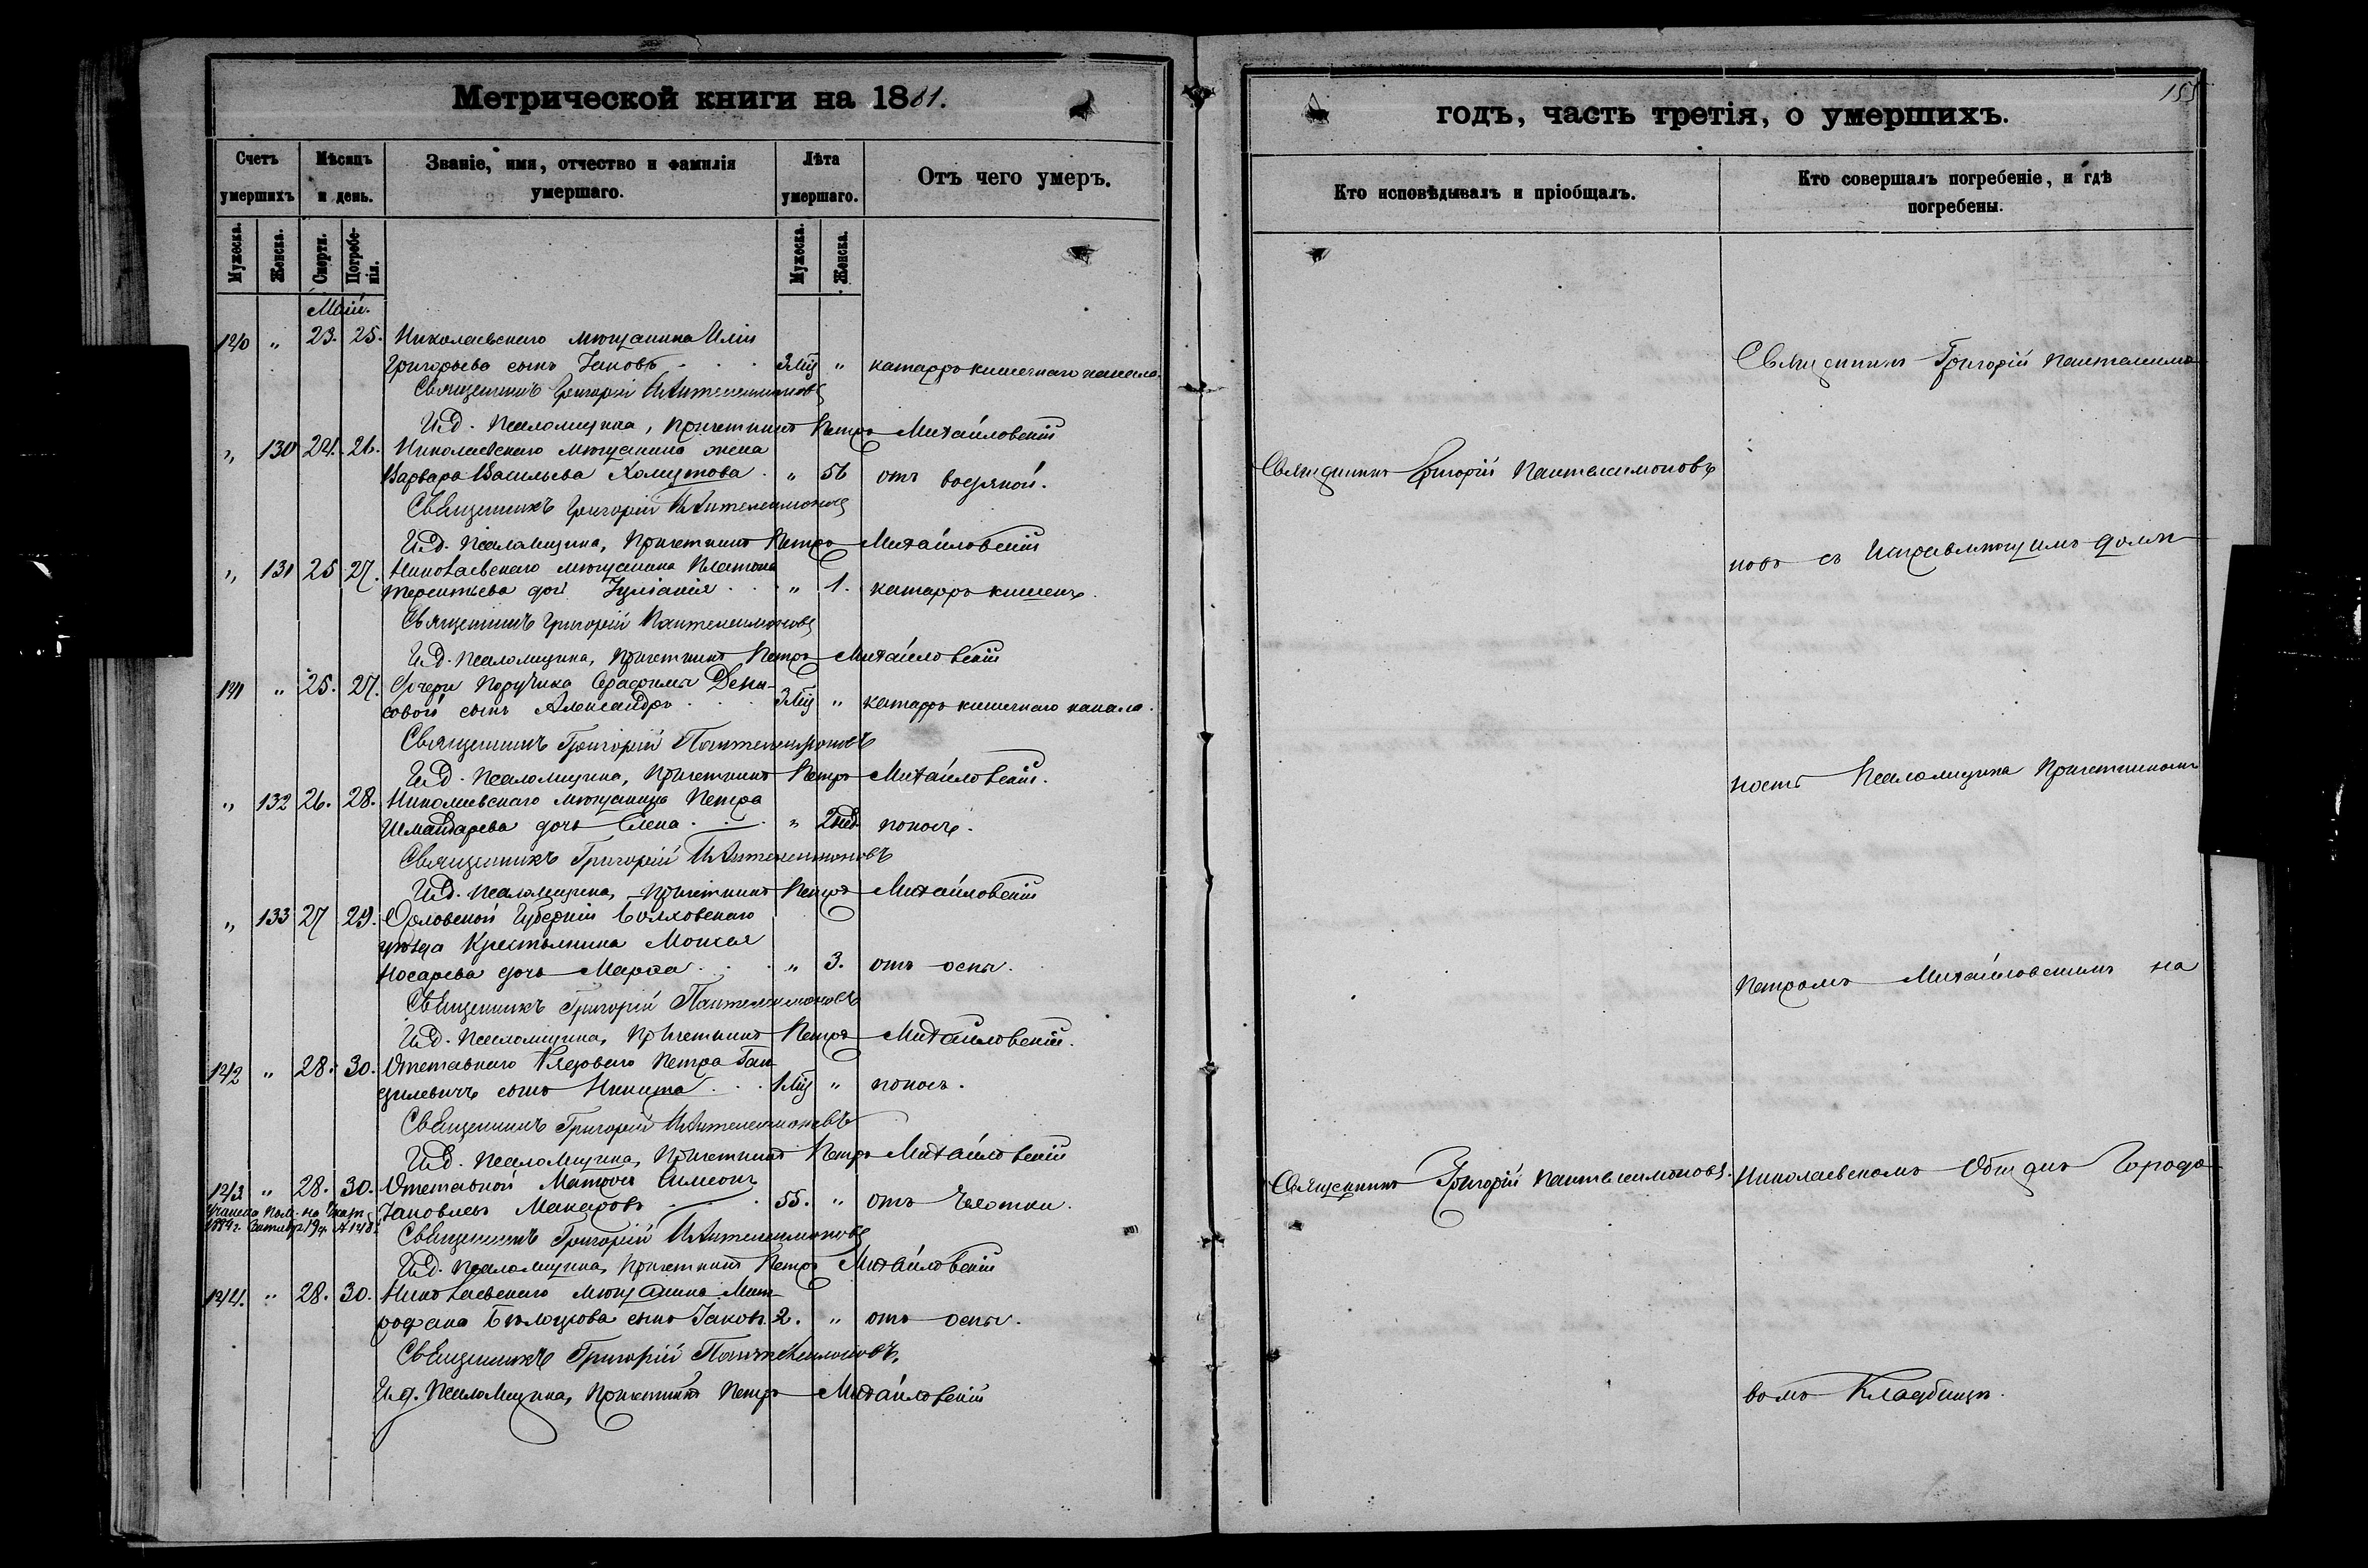 Метрической книги на 1881.
Счетъ умершихъ
Мѣсяцъ и день.
Званіе, имя, отчество и фамилія умершаго.
Лѣта умершаго.
Отъ чего умеръ.
Мужеска. Женска. Смерти. Погребе-нія. Мужеска. Женска.
Май.
140 " 23. 25. Николаевскаго мѣщанина Иліи
Григорьева сынъ Іаковъ 3 мѣц " катарръ кишечнаго канала.
Священникъ Григорій Пантелеимоновъ
И.д. Псаломщика, Причетникъ Петръ Михайловскій
" 130 24. 26. Николаевскаго мѣщанина жена
Варвара Васильева " 56 отъ водяной.
Священникъ Григорій Пантелеимоновъ
И.д. Псаломщика, Причетникъ Петръ Михайловскій
" 131 25 27. Николаевскаго мѣщанина Платона
Терентьева дочь Іуліанія " 1. катарръ кишекъ.
Священникъ Григорій Пантелеимоновъ
И.д. Псаломщика, Причетникъ Петръ Михайловскій
141 " 25. 27. Дочери Поручика Серафимы Дени-
совой сынъ Александръ 3 мѣц " катарръ кишечнаго канала.
Священникъ Григорій Пантелеимоновъ
И.д. Псаломщика, Причетникъ Петръ Михайловскій.
" 132 26. 28. Николаевскаго мѣщанина Петра
Шмандарева дочь Елена " 2 нед. поносъ.
Священникъ Григорій Пантелеимоновъ
И.д. Псаломщика, Причетникъ Петръ Михайловскій
" 133 27 29. Орловской Губерніи Болховскаго
уѣзда Крестьянина Моисея
Носарева дочь Марѳа " 3. отъ оспы.
Священникъ Григорій Пантелеимоновъ
И.д. Псаломщика, Причетникъ Петръ Михайловскій.
142 " 28. 30. Отставнаго Рядоваго Петра Ган-
сынъ Никита 1 мѣц " поносъ.
Священникъ Григорій Пантелеимоновъ
И.д. Псаломщика, Причетникъ Петръ Михайловскій
143 " 28. 30. Отставной Матросъ Симеонъ
Іаковлевъ Макаровъ 55. " отъ чахотки.
1884 г. Октября 19 д. № 148
Священникъ Григорій Пантелеимоновъ
И.д. Псаломщика, Причетникъ Петръ Михайловскій
144. " 28. 30. Николаевскаго мѣщанина Мит-
рофана сынъ Іаковъ. 2. " отъ оспы.
Священникъ Григорій Пантелеимоновъ,
И.д. Псаломщика, Причетникъ Петръ Михайловскій
155
годъ, часть третія, о умершихъ.
Кто исповѣдывалъ и пріобщалъ.
Кто совершалъ погребеніе, и гдѣ погребены.
Священникъ Григорій Пантелеимо-
Священникъ Григорій Пантелеимоновъ
новъ съ Исправляющимъ долж-
ность Псаломщика Причетникомъ
Петромъ Михайловскимъ на
Священникъ Григорій Пантелеимоновъ.
Николаевскомъ Общемъ Городо-
вомъ Кладбищѣ.